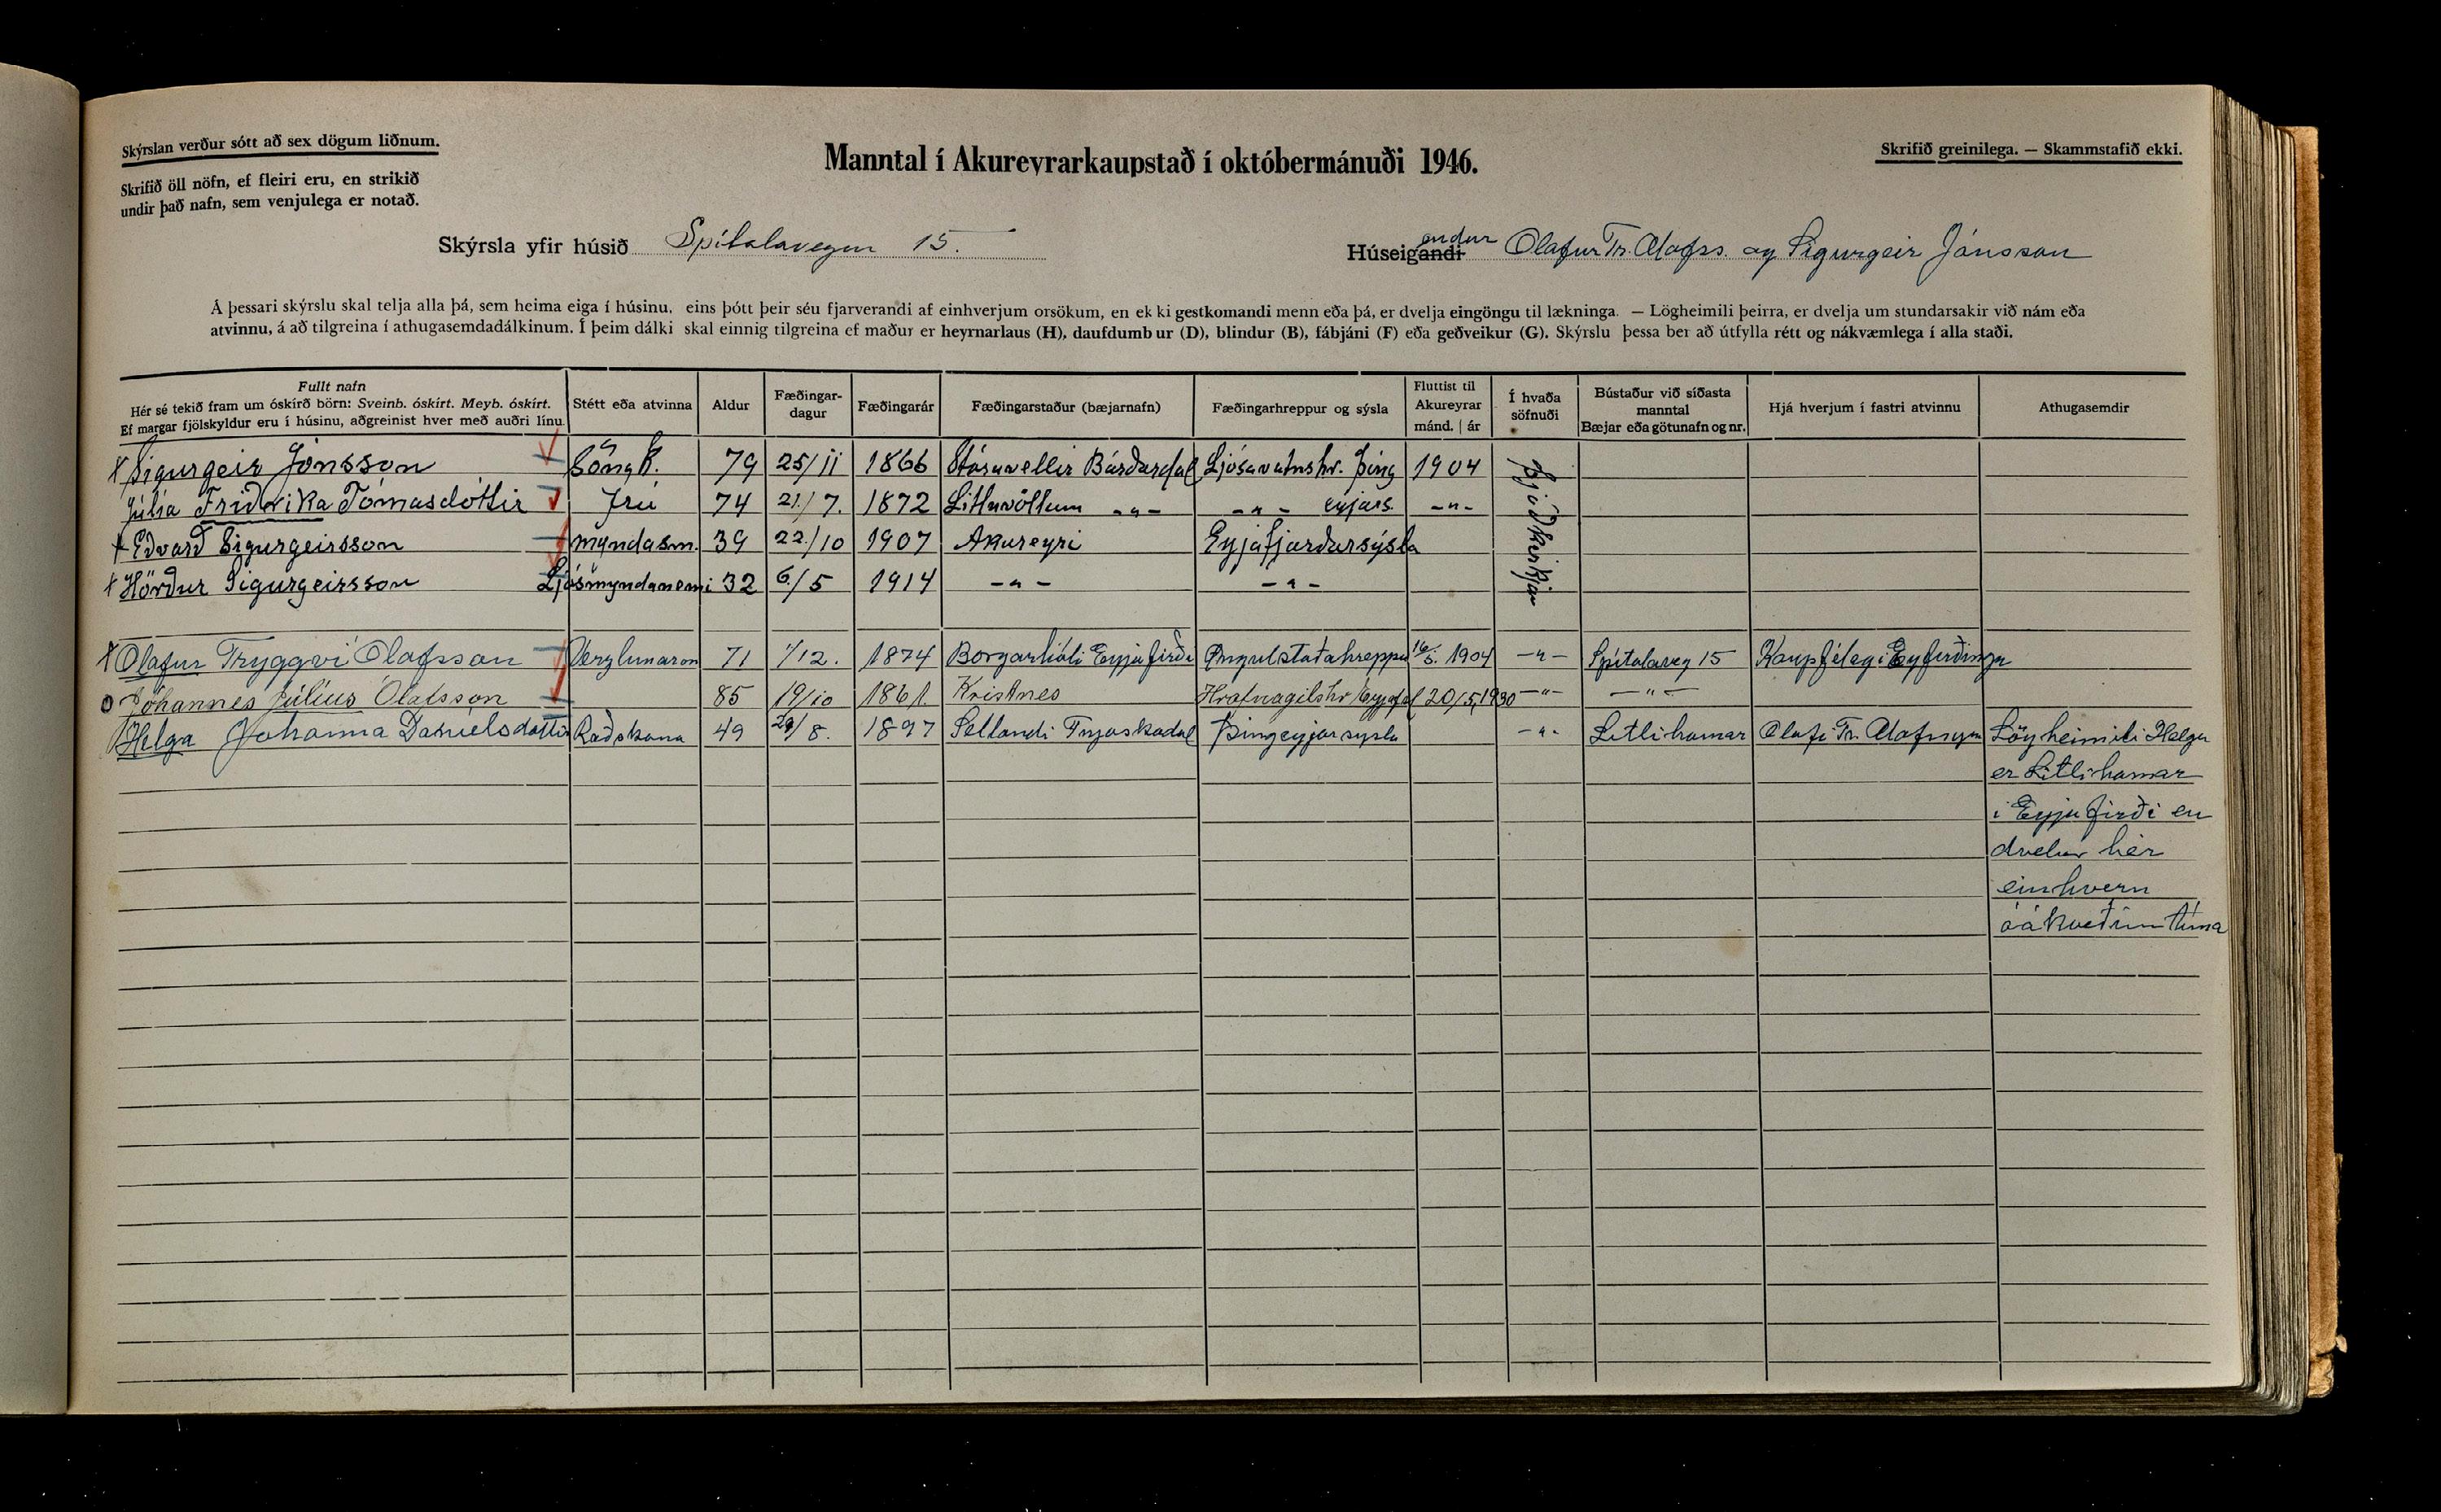 Skýrslan verður sótt að sex dögum liðnum.
Manntal í Akureyrarkaupstað í októbermánuði 1946.
Skrifið greinilega. — Skammstafið ekki.
Skrifið öll nöfn, ef fleiri eru, en strikið
undir það nafn, sem venjulega er notað.
Skýrsla yfir húsið Spítalavegur 15.
Húseigandi endur Olafur Tr. Olafss. og Sigurgeir Jónsson
Á þessari skýrslu skal telja alla þá, sem heima eiga í húsinu, eins þótt þeir séu fjarverandi af einhverjum orsökum, en ekki gestkomandi menn eða þá, er dvelja eingöngu til lækninga. — Lögheimili þeirra, er dvelja um stundarsakir við nám eða
atvinnu, á að tilgreina í athugasemdadálkinum. Í þeim dálki skal einnig tilgreina ef maður er heyrnarlaus (H), daufdumbur (D), blindur (B), fábjáni (F) eða geðveikur (G). Skýrslu þessa ber að útfylla rétt og nákvæmlega í alla staði.
Fullt nafn
Hér sé tekið fram um óskírð börn: Sveinb. óskírt. Meyb. óskírt.
Ef margar fjölskyldur eru í húsinu, aðgreinist hver með auðri línu.
Stétt eða atvinna
Aldur
Fæðingar-
dagur
Fæðingarár
Fæðingarstaður (bæjarnafn)
Fæðingarhreppur og sýsla
Fluttist til
Akureyrar
mánd. | ár
Í hvaða
söfnuði
Bústaður við síðasta
manntal
Bæjar eða götunafn og nr.
Hjá hverjum í fastri atvinnu
Athugasemdir
Sigurgeir Jónsson Söngk. 79 25/11 1866 Stóruvellir Bárðardal Ljósavatnshr. Þing 1904 Þjóðkirkjan
Júlía Friðrika Tómasdóttir Frú 74 21/7. 1872 Litluvöllum -"- -"- eyjars. -"-
Eðvarð Sigurgeirsson myndasm. 39 22/10 1907 Akureyri Eyjafjarðarsýsla
Hörður Sigurgeirsson Ljósmyndanemi 32 6/5 1914 -"- -"-
Olafur Tryggvi Olafsson Verzlunarm 71 1/12. 1874 Borgarhóli Eyjafirði Öngulstaðahreppu 16/5. 1904 -"- Spítalaveg 15 Kaupfélagi Eyfirðinga
Jóhannes Júlíus Olafsson 85 19/10 1861. Kristnes Hrafnagilshr Eyjafj 20/5, 1930 -"- -"-
Helga Jóhanna Daníelsdóttir Ráðskona 49 29/8. 1897 Sellandi Fnjóskadal Þingeyjarsýslu -"- Litlihamar Olafi Tr. Olafssyni Lögheimili Helgu
er Litlihamar
i Eyjafirði en
dvelur hér
einhvern
óákveðinn tíma